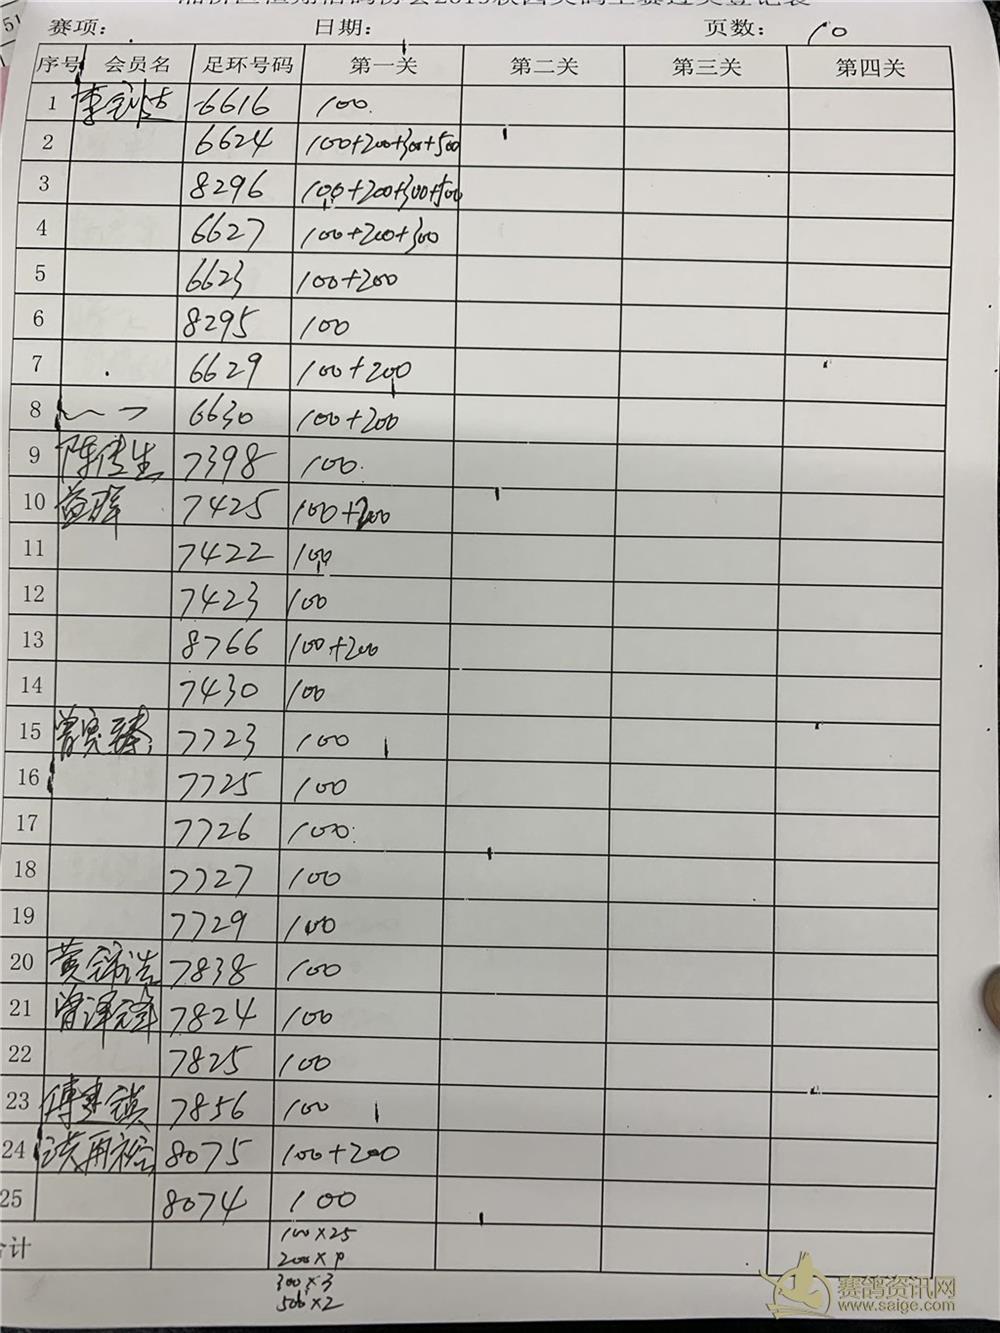 赛项： 日期： 页数： 10
序号 会员名 足环号码 第一关 第二关 第三关 第四关
1 6616 100
2 6624 100+200+300+500
3 8296 100+200+300+500
4 6627 100+200+300
5 6623 100+200
6 8295 100
7 6629 100+200
8 6630 100+200
9 陈传生 7398 100
10 益晖 7425 100+200
11 7422 100
12 7423 100
13 8766 100+200
14 7430 100
15 7723 100
16 7725 100
17 7726 100
18 7727 100
19 7729 100
20 7838 100
21 7824 100
22 7825 100
23 7856 100
24 8075 100+200
25 8074 100
合计 100×25
200×9
300×3
500×2
赛鸽资讯网
www.saige.com